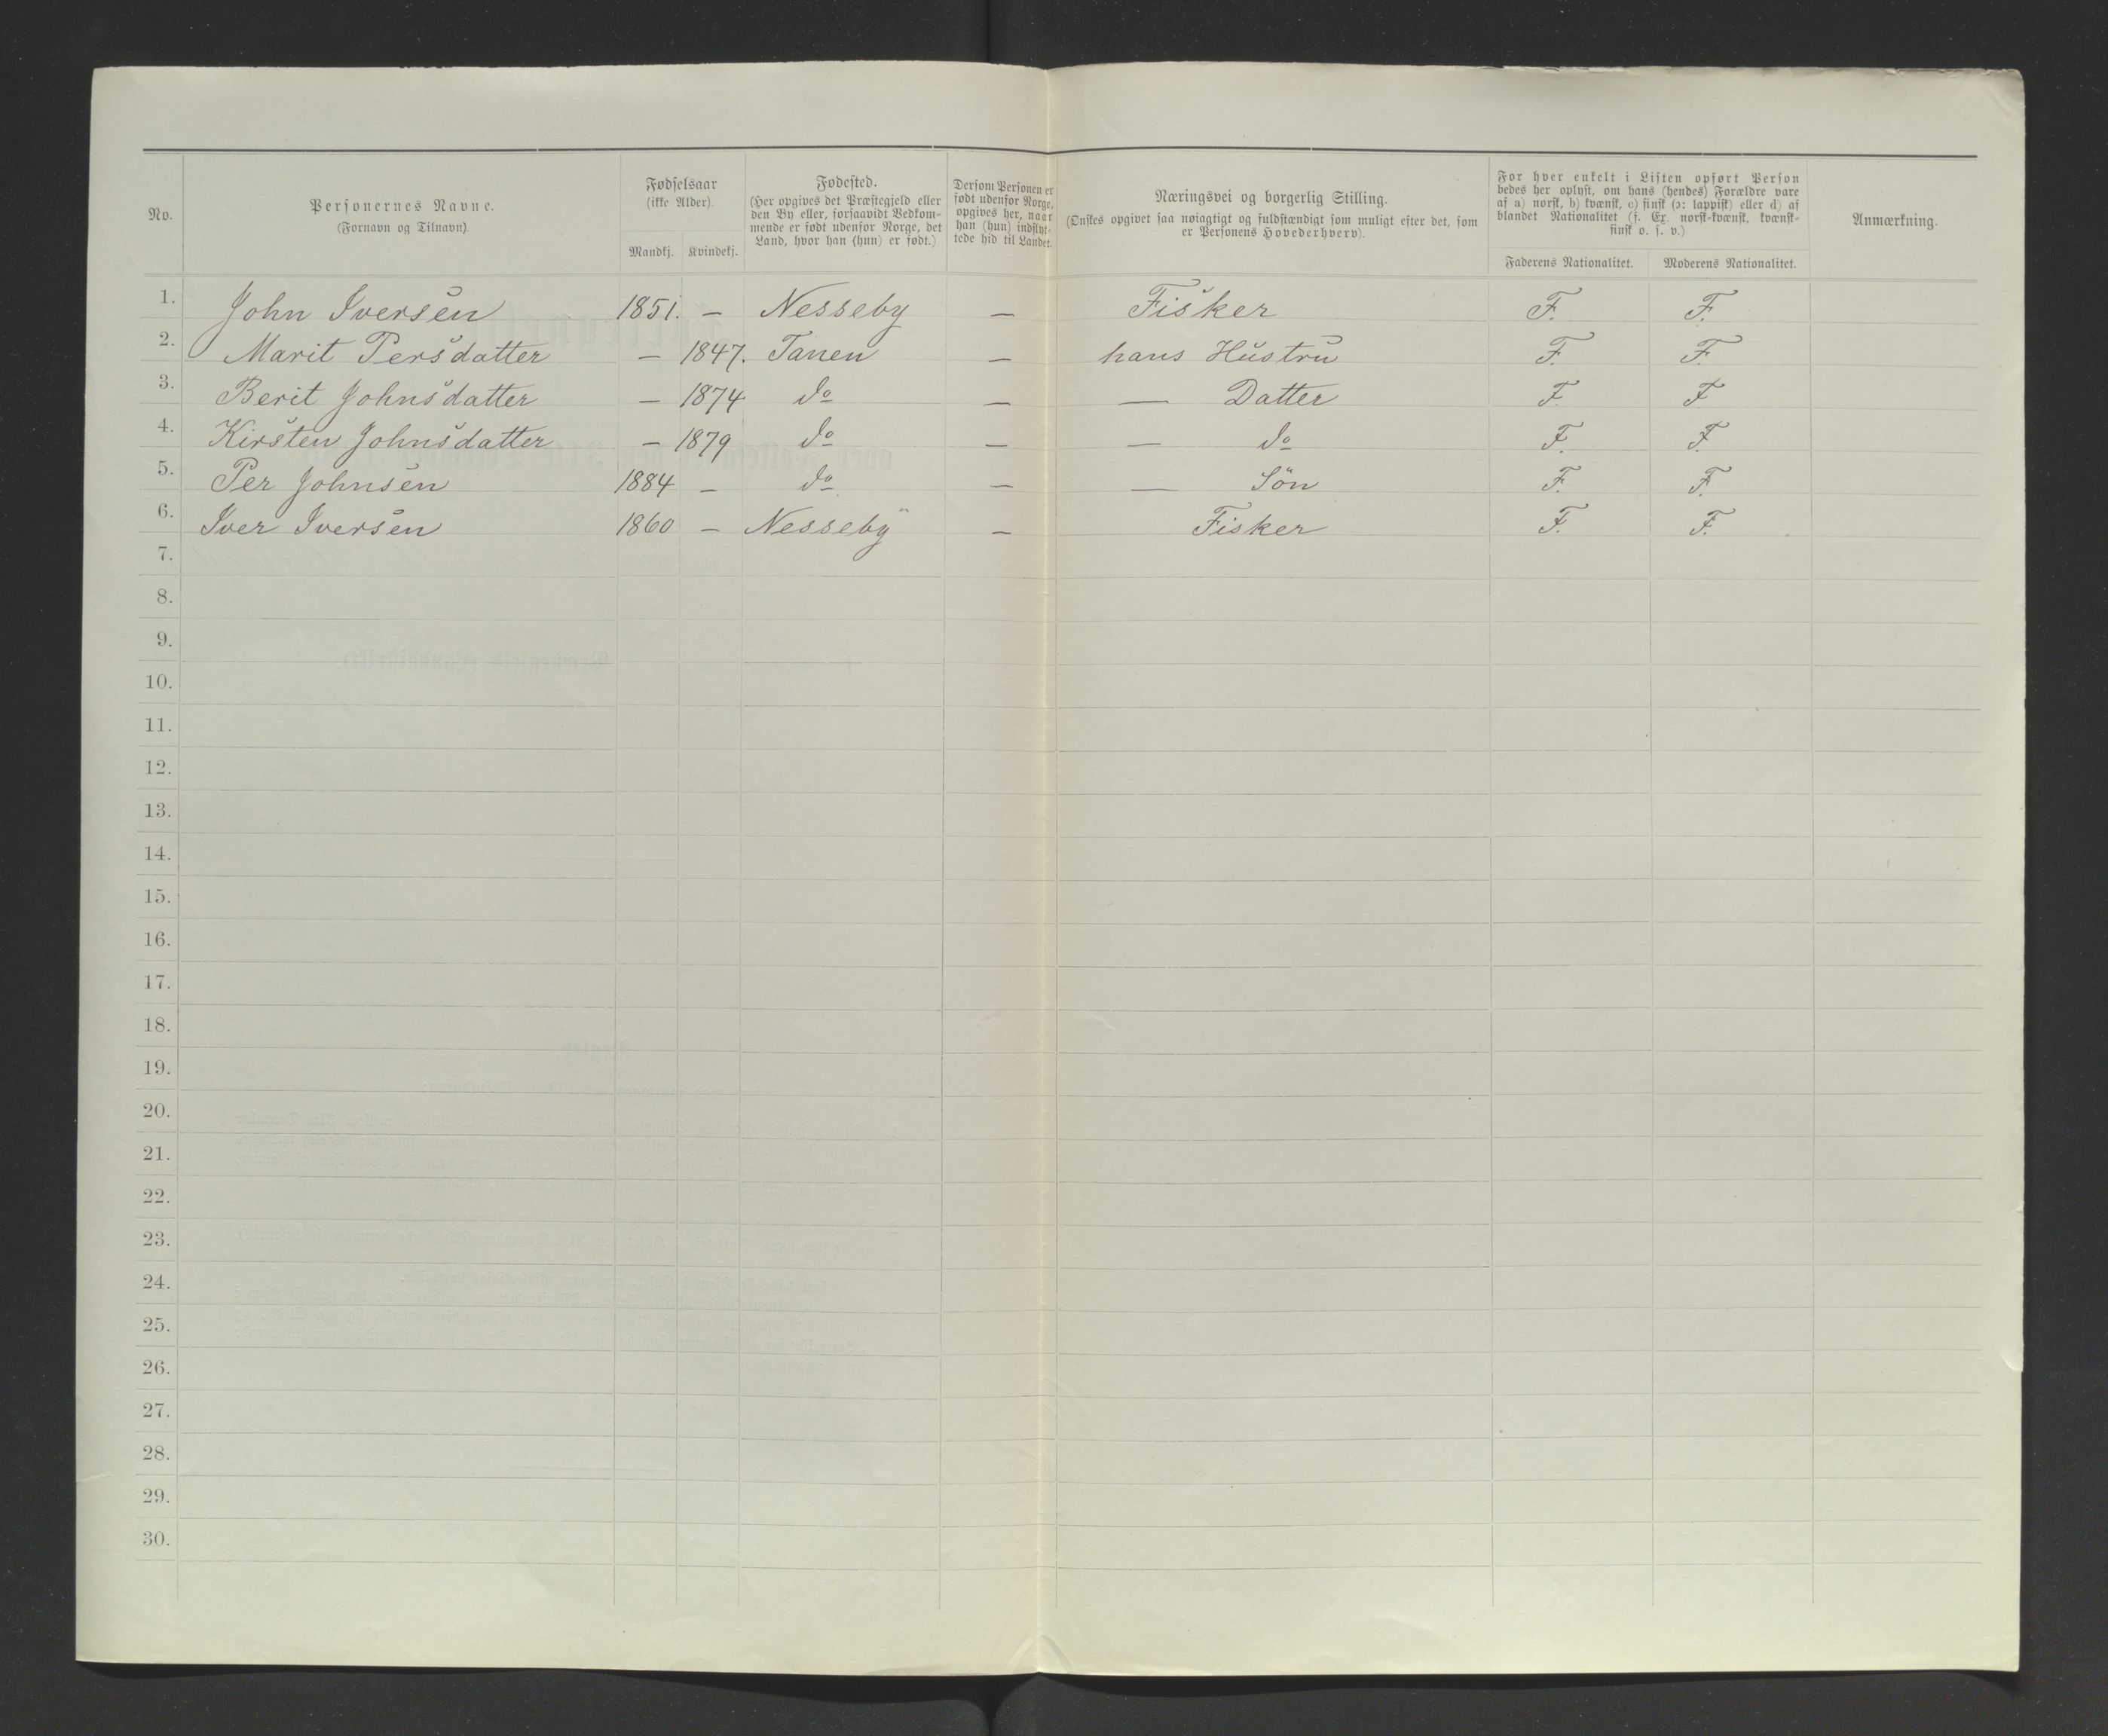 No.
Personernes Navne.
(Fornavn og Tilnavn).
Fødselsaar
(ikke Alder).
Mandkj. Kvindekj.
Fødested.
(Her opgives det Præstegjeld eller
den By eller, forsaavidt Vedkom-
mende er født udenfor Norge, det
Land, hvor han (hun) er født.)
Dersom Personen er
født udenfor Norge,
opgives her, naar
han (hun) indflyt-
tede hid til Landet.
Næringsvei og borgerlig Stilling.
(Ønskes opgivet saa nøiagtigt og fuldstændigt som muligt efter det, som
er Personens Hovederhverv).
For hver enkelt i Listen opført Person
bedes her oplyst, om hans (hendes) Forældre vare
af a) norsk, b) kvænsk, c) finsk (ɔ: lappisk) eller d) af
blandet Nationalitet (f. Ex. norsk-kvænsk, kvænsk-
finsk o. s. v.)
Faderens Nationalitet. Moderens Nationalitet.
Anmærkning.
1. John Iversen 1851. — Nesseby — Fisker F. F.
2. Marit Persdatter — 1847. Tanen — hans Hustru F. F.
3. Berit Johnsdatter — 1874 do — — Datter F. F
4. Kirsten Johnsdatter — 1879 do — — do F. F.
5. Per Johnsen 1884 — do — — Søn F. F.
6. Iver Iversen 1860 — Nesseby — Fisker F. F.
7.
8.
9.
10.
11.
12.
13.
14.
15.
16.
17.
18.
19.
20.
21.
22.
23.
24.
25.
26.
27.
28.
29.
30.